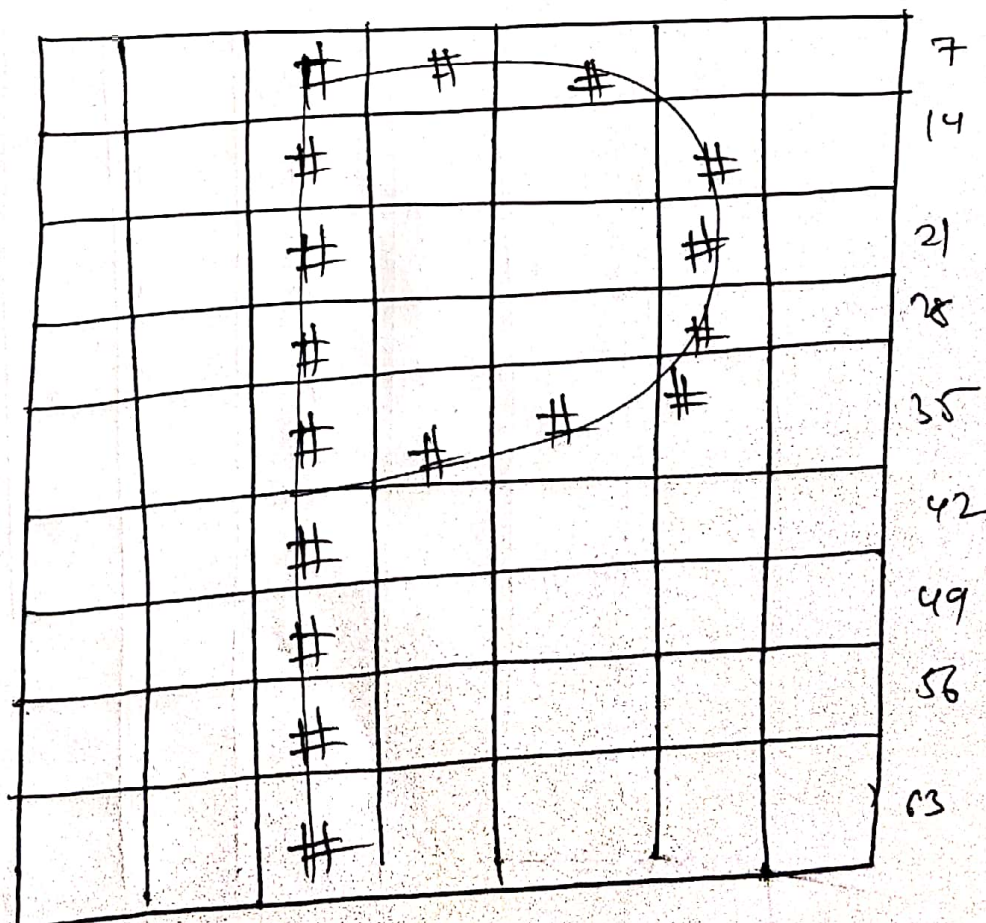 # # # 7
# # 14
# # 21
# # 28
# # # # 35
# 42
# 49
# 56
# 63